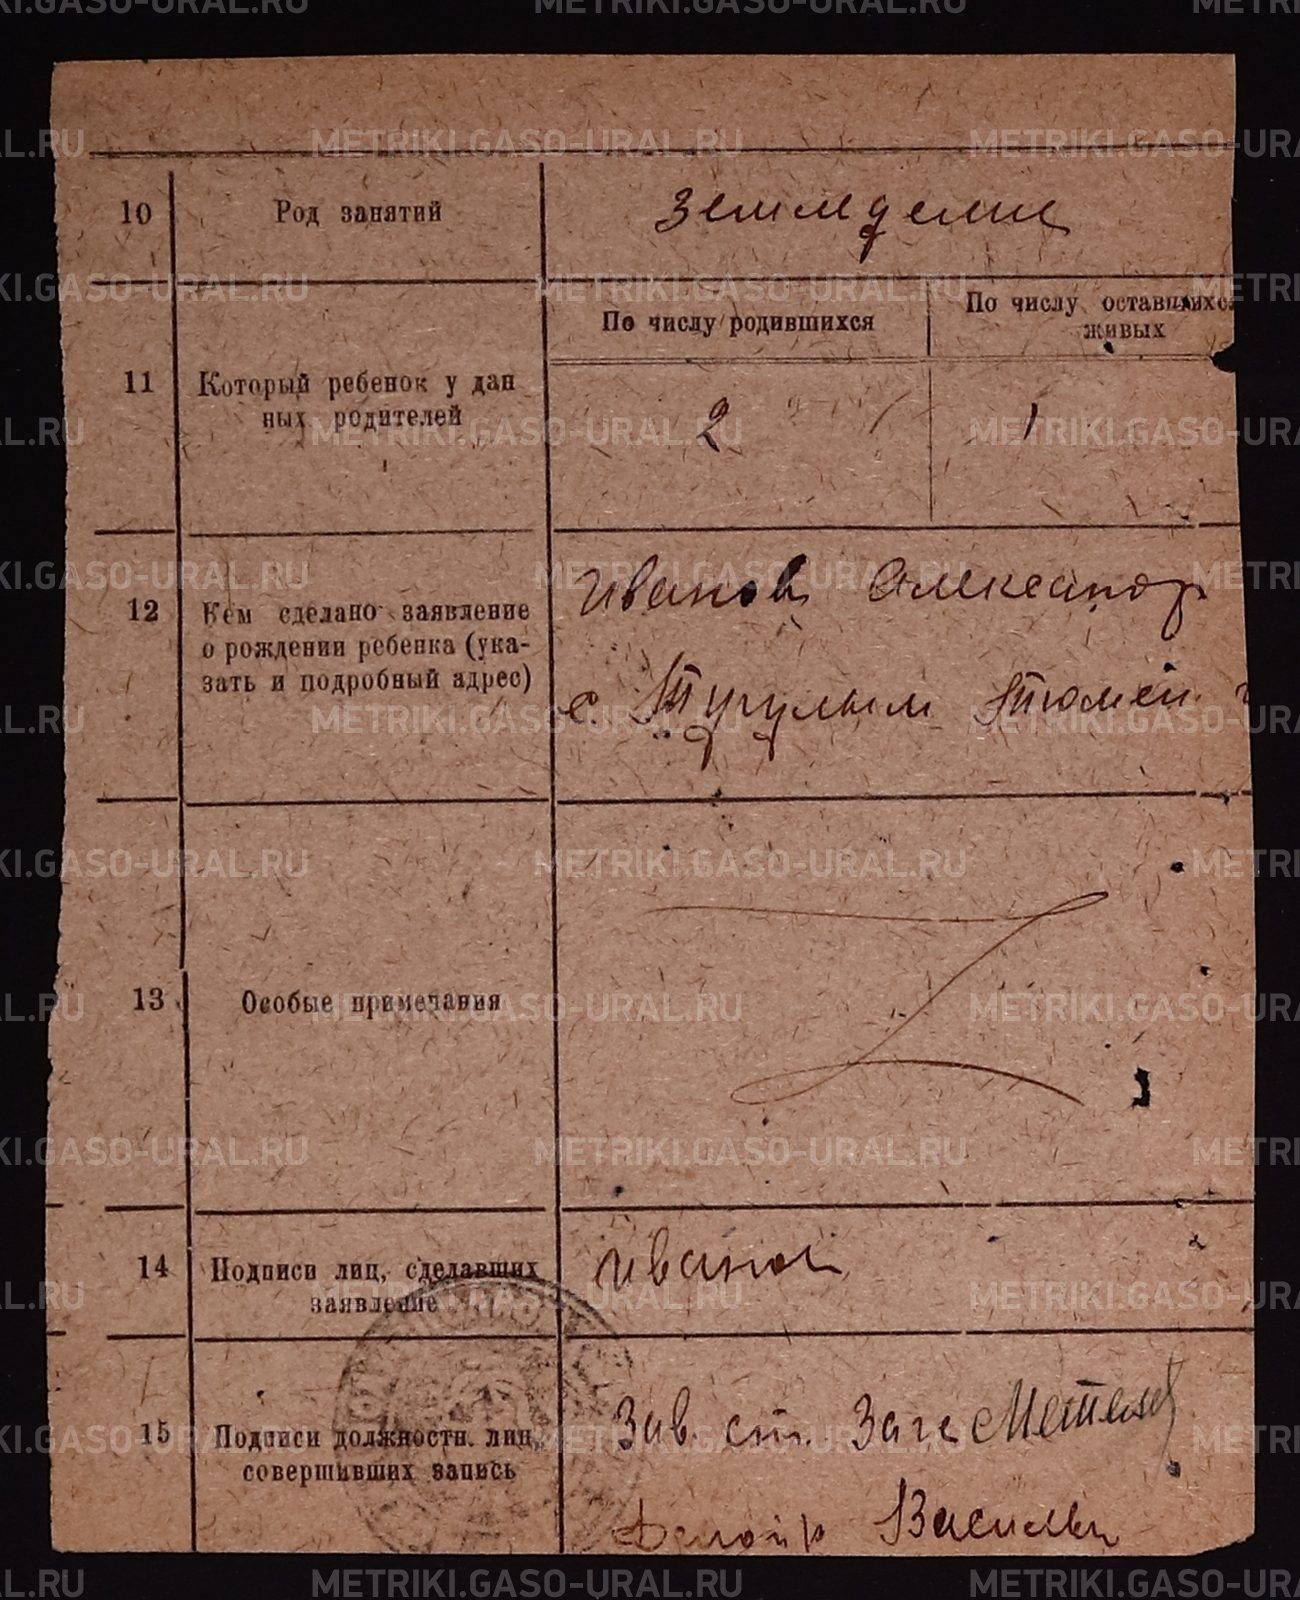 10 Род занятий Земледелие
11 Который ребенок у дан
ных родителей
По числу родившихся
2
По числу оставшихся
живых
1
12 Кем сделано заявление
о рождении ребенка (ука-
зать и подробный адрес)
Иванов Александр
с. Тугулым Тюмен.
13 Особые примечания
14 Подписи лиц, сделавших
заявление
Иванов
15 Подписи должностн. лиц,
совершивших запись
Зав. ст. Загс
Делопр Васильев
METRIKI.GASO-URAL.RU